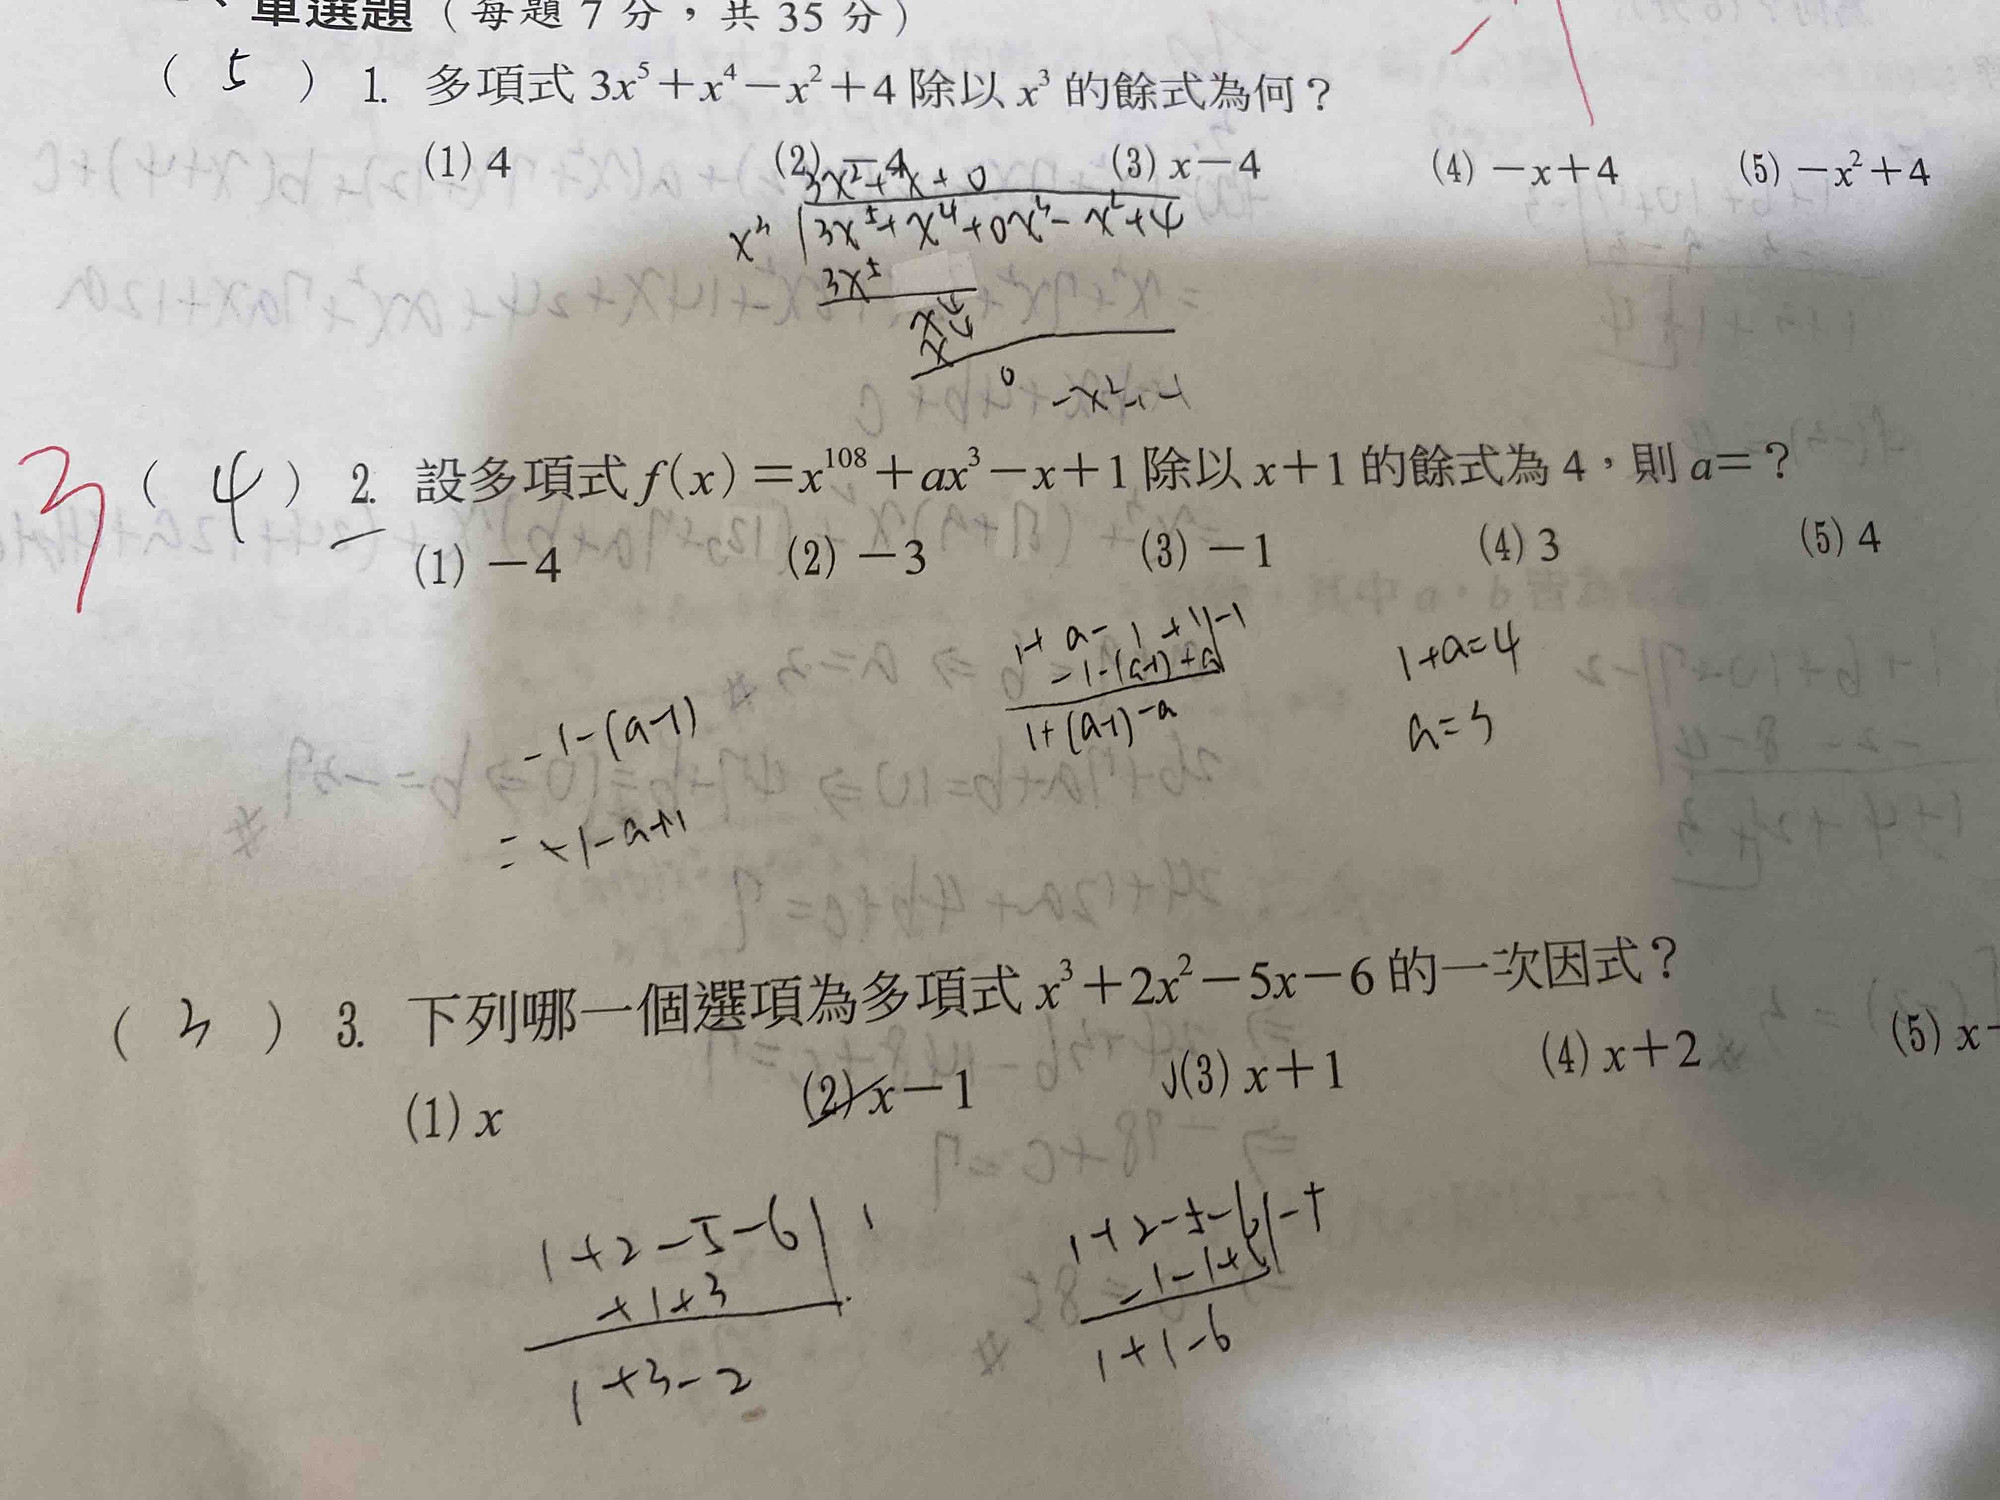 單選題（每題 7 分，共 35 分）
( 5 ) 1. 多項式 3x⁵＋x⁴－x²＋4 除以 x³ 的餘式為何？
(1) 4 (2) －4 (3) x－4 (4) －x＋4 (5) －x²＋4
x³ 3x⁵+x⁴+0x³-x²+4
3x⁵
x⁴
x⁴
0
3 ( 4 ) 2. 設多項式 f(x)＝x¹⁰⁸＋ax³－x＋1 除以 x＋1 的餘式為 4，則 a＝？
(1) －4 (2) －3 (3) －1 (4) 3 (5) 4
1+ a- 1 +1 -1
-1-(a-1) +a
1+(a-1)-a
1+a=4
a=3
-1-(a-1)
( 3 ) 3. 下列哪一個選項為多項式 x³＋2x²－5x－6 的一次因式？
(1) x (2) x－1 (3) x＋1 (4) x＋2 (5) x－
1+2-5-6 1
+1+3
1+3-2
1+2-5-6 -1
-1-1+6
1+1-6